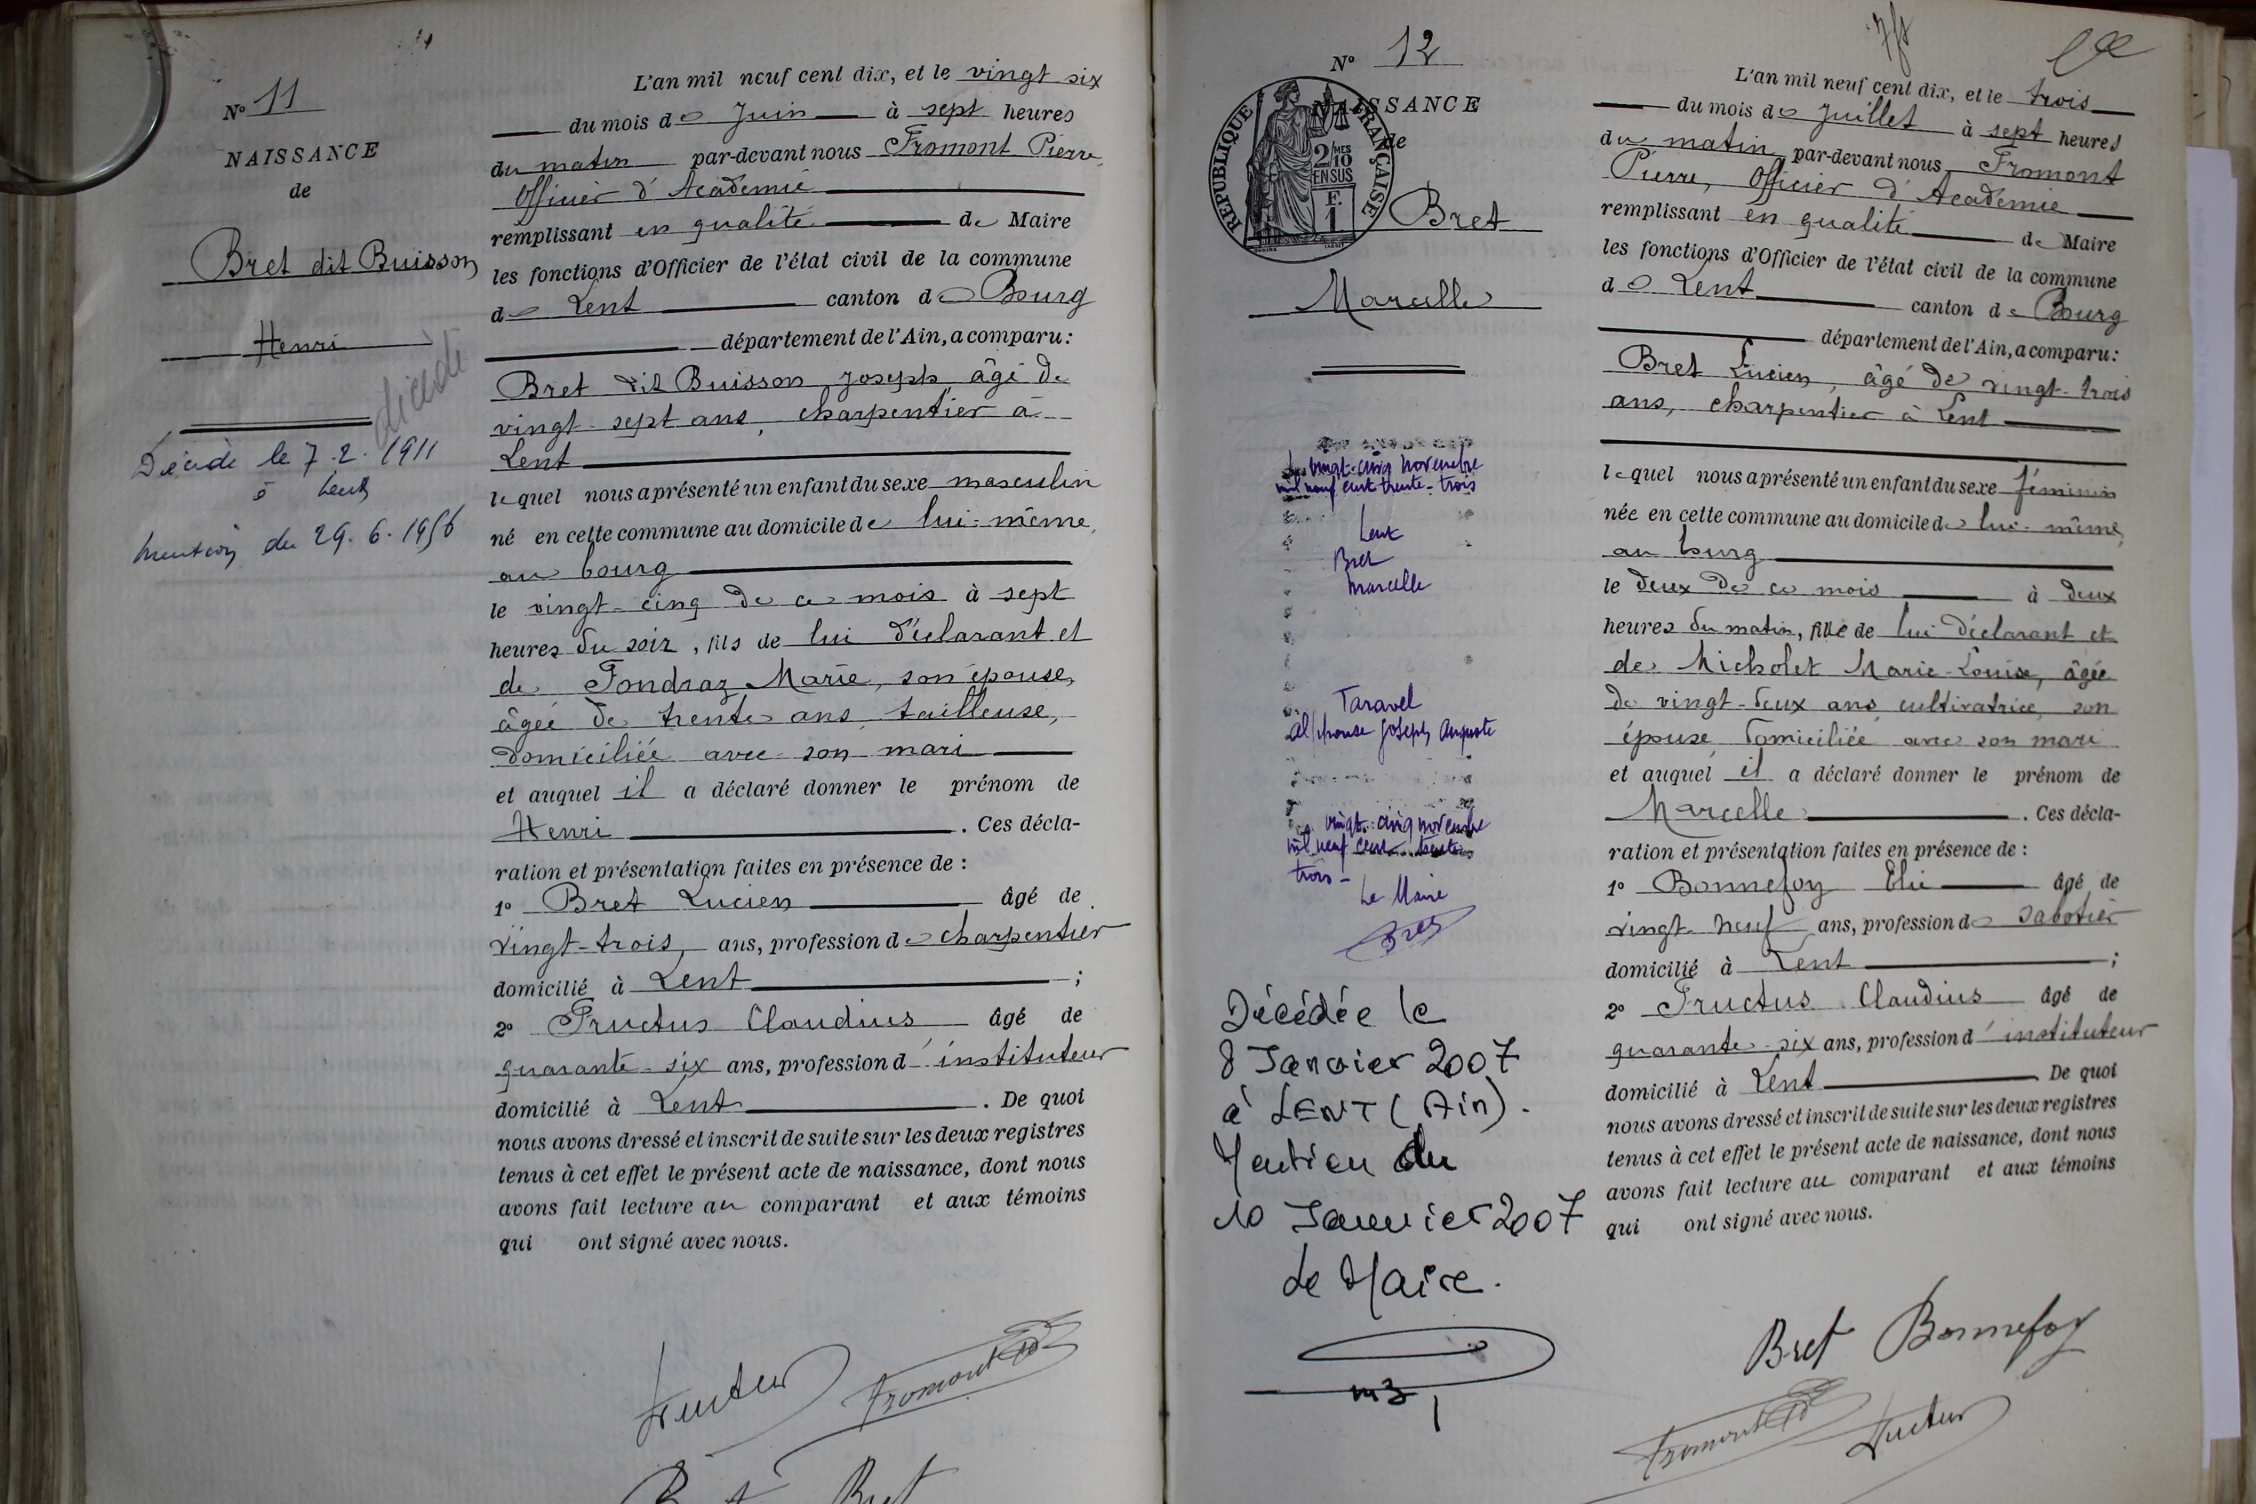 N° 11
NAISSANCE
de
Bret dit Buisson
Henri
décédé
Décédé le 7.2.1911
à Lent
mention du 29.6.1956
L'an mil neuf cent dix, et le vingt six
du mois de Juin à sept heures
du matin par-devant nous Fromont Pierre,
Officier d'Académie
remplissant en qualité de Maire
les fonctions d'Officier de l'état civil de la commune
de Lent canton de Bourg
département de l'Ain, a comparu:
Bret dit Buisson Joseph âgé de
vingt-sept ans, charpentier à
Lent
lequel nous a présenté un enfant du sexe masculin
né en cette commune au domicile de lui-même,
au bourg
le vingt-cinq de ce mois à sept
heures du soir, fils de lui déclarant et
de Fondraz Marie, son épouse,
âgée de trente ans, tailleuse,
domiciliée avec son mari
et auquel il a déclaré donner le prénom de
Henri. Ces décla-
ration et présentation faites en présence de :
1° Bret Lucien âgé de
vingt-trois ans, profession de charpentier
domicilié à Lent ;
2° Fructus Claudius âgé de
quarante-six ans, profession d'instituteur
domicilié à Lent. De quoi
nous avons dressé et inscrit de suite sur les deux registres
tenus à cet effet le présent acte de naissance, dont nous
avons fait lecture au comparant et aux témoins
qui ont signé avec nous.
Fructus Fromont
Bret Bret
N° 12
NAISSANCE
de
RÉPUBLIQUE FRANÇAISE
2/10 MES
EN SUS
F.
1
Bret
Marcelle
vingt-cinq novembre
mil neuf cent trente-trois
Lent
Bret
Marcelle
Taravel
Alphonse Joseph Auguste
vingt-cinq novembre
mil neuf cent trente
trois-
Le Maire
Décédée le
8 Janvier 2007
à LENT (Ain).
Mention du
10 Janvier 2007
Le Maire.
L'an mil neuf cent dix, et le trois
du mois de Juillet à sept heures
du matin par-devant nous Fromont
Pierre, Officier d'Académie
remplissant en qualité de Maire
les fonctions d'Officier de l'état civil de la commune
de Lent canton de Bourg
département de l'Ain, a comparu:
Bret Lucien, âgé de vingt-trois
ans, charpentier à Lent
lequel nous a présenté un enfant du sexe féminin
née en cette commune au domicile de lui-même,
au bourg
le deux de ce mois à deux
heures du matin, fille de lui déclarant et
de Micholet Marie-Louise, âgée
de vingt-deux ans cultivatrice, son
épouse domiciliée avec son mari
et auquel il a déclaré donner le prénom de
Marcelle. Ces décla-
ration et présentation faites en présence de :
1° Bonnefoy Elie âgé de
vingt-neuf ans, profession de sabotier
domicilié à Lent ;
2° Fructus Claudius âgé de
quarante-six ans, profession d'instituteur
domicilié à Lent De quoi
nous avons dressé et inscrit de suite sur les deux registres
tenus à cet effet le présent acte de naissance, dont nous
avons fait lecture au comparant et aux témoins
qui ont signé avec nous.
Bret Bonnefoy
Fromont Fructus